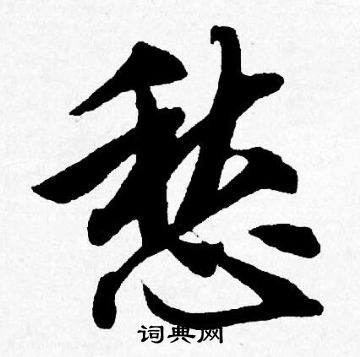 愁
词典网